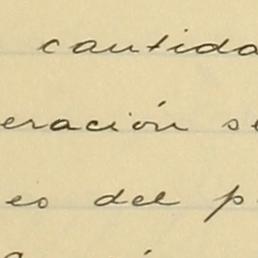 cantida
eración se
es del p